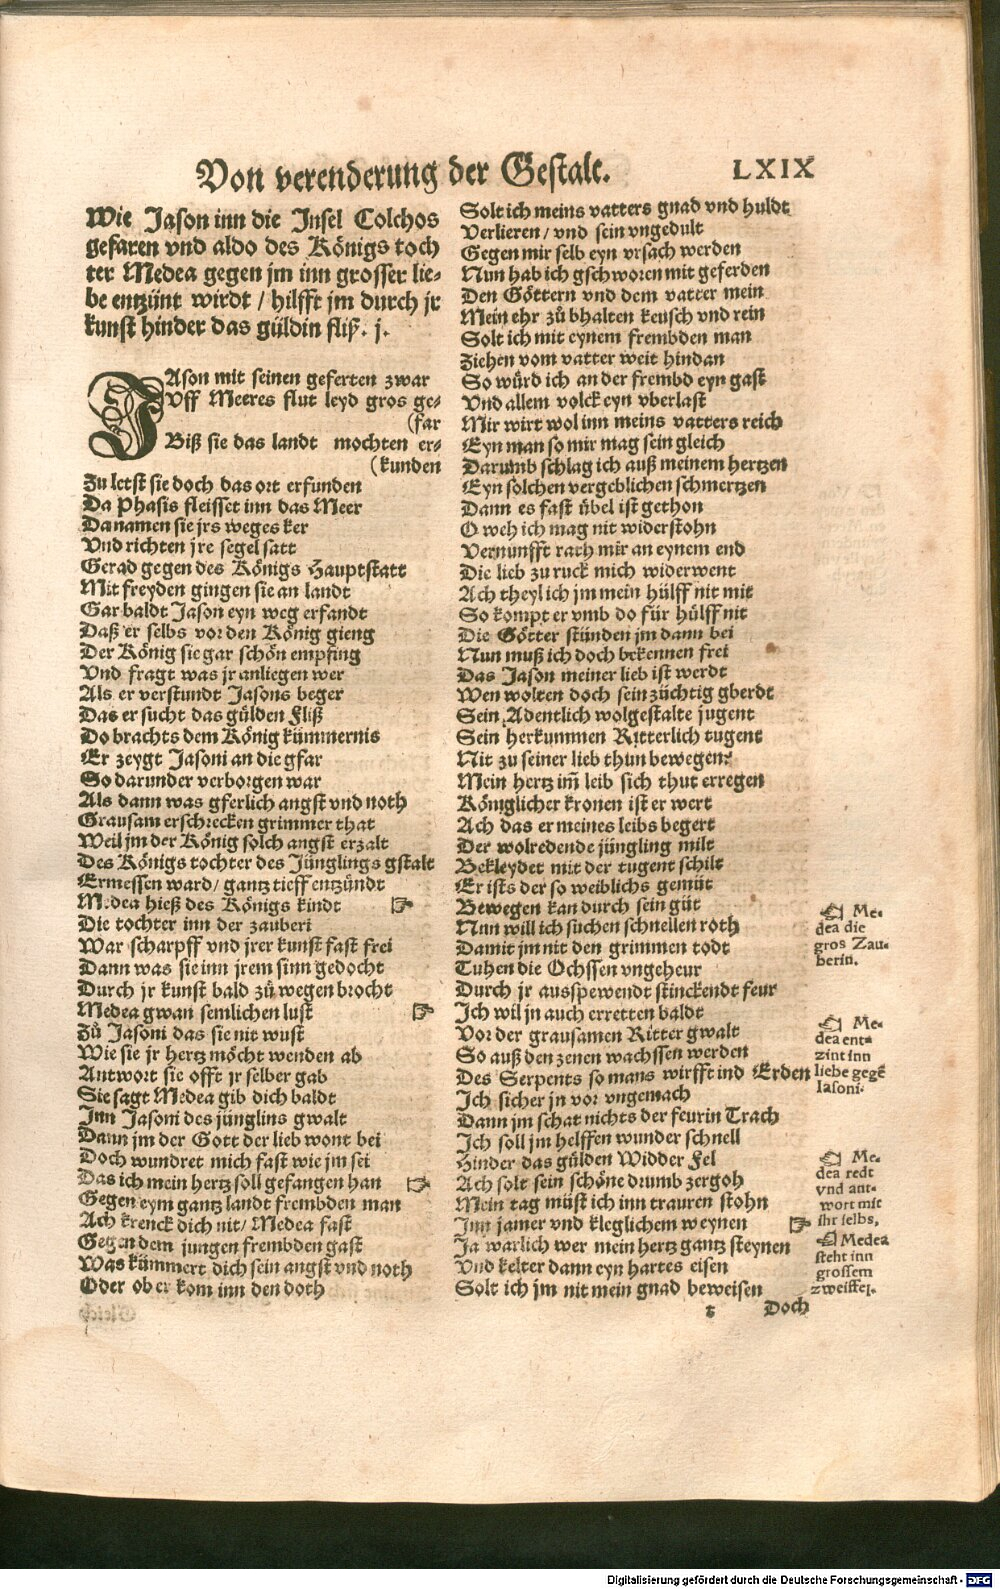 Von verenderung der Gestalt. LXIX
Wie Jason inn die Insel Colchos
gefaren vnd aldo des Königs toch
ter Medea gegen jm inn grosser lie-
be entzünt wirdt / hilfft jm durch jr
kunst hinder das güldin fliß. j.
JAson mit seinen geferten zwar
Vff Meeres flut leyd gros ge-
(far
Biß sie das landt mochten er-
(kunden
Zu letst sie doch das ort erfunden
Da Phasis fleisset inn das Meer
Da namen sie jrs weges ker
Vnd richten jre segel satt
Gerad gegen des Königs Hauptstatt
Mit freyden gingen sie an landt
Gar baldt Jason eyn weg erfandt
Daß er selbs vor den König gieng
Der König sie gar schön empfing
Vnd fragt was jr anliegen wer
Als er verstundt Jasons beger
Das er sucht das gülden Fliß
Do brachts dem König kümmernis
Er zeygt Jasoni an die gfar
So darunder verborgen war
Als dann was gferlich angst vnd noth
Grausam erschrecken grimmer that
Weil jm der König solch angst erzalt
Des Königs tochter des Jünglings gstalt
Ermessen ward / gantz tieff entzündt
Medea hieß des Königs kindt ☞
Die tochter inn der zauberi
War scharpff vnd jrer kunst fast frei
Dann was sie inn jrem sinn gedocht
Durch jr kunst bald zů wegen brocht
Medea gwan semlichen lust ☞
Zů Jasoni das sie nit wust
Wie sie jr hertz möcht wenden ab
Antwort sie offt jr selber gab
Sie sagt Medea gib dich baldt
Inn Jasoni des jünglins gwalt
Dann jm der Gott der lieb wont bei
Doch wundret mich fast wie jm sei
Das ich mein hertz soll gefangen han ☞
Gegen eym gantz landt frembden man
Ach krenck dich nit / Medea fast
Gegen dem jungen frembden gast
Was kümmert dich sein angst vnd noth
Oder ob er kom inn den doth
Solt ich meins vatters gnad vnd huldt
Verlieren / vnd sein vngedult
Gegen mir selb eyn vrsach werden
Nun hab ich gschworen mit geferden
Den Göttern vnd dem vatter mein
Mein ehr zů bhalten keusch vnd rein
Solt ich mit eynem frembden man
Ziehen vom vatter weit hindan
So würd ich an der frembd eyn gast
Vnd allem volck eyn vberlast
Mir wirt wol inn meins vatters reich
Eyn man so mir mag sein gleich
Darumb schlag ich auß meinem hertzen
Eyn solchen vergeblichen schmertzen
Dann es fast übel ist gethon
O weh ich mag nit widerstohn
Vernunfft rach mir an eynem end
Die lieb zu ruck mich widerwent
Ach theyl ich jm mein hülff nit mit
So kompt er vmb do für hülff nit
Die Götter stünden jm dann bei
Nun muß ich doch bekennen frei
Das Jason meiner lieb ist werdt
Wen wolten doch sein züchtig gberdt
Sein Adentlich wolgestalte jugent
Sein herkummen Ritterlich tugent
Nit zu seiner lieb thun bewegen?
Mein hertz im̃ leib sich thut erregen
Königlicher kronen ist er wert
Ach das er meines leibs begert
Der wolredende jüngling milt
Bekleydet mit der tugent schilt
Er ists der so weiblichs gemüt
Bewegen kan durch sein güt
Nun will ich suchen schnellen roth
Damit jm nit den grimmen todt
Tuhen die Ochssen vngeheur
Durch jr ausspewendt stinckendt feur
Ich wil jn auch erretten baldt
Vor der grausamen Ritter gwalt
So auß den zenen wachssen werden
Des Serpents so mans wirfft ind Erden
Ich sicher jn vor vngemach
Dann jm schat nichts der feurin Trach
Ich soll jm helffen wunder schnell
Hinder das gülden Widder Fel
Ach solt sein schöne drumb zergoh
Mein tag müst ich inn trauren stohn
Inn jamer vnd kleglichem weynen ☞
Ja warlich wer mein hertz gantz steynen
Vnd kelter dann eyn hartes eisen
Solt ich jm nit mein gnad beweisen
t Doch
☜ Me-
dea die
gros Zau-
berin.
☜ Me-
dea ent-
zint inn
liebe gegē
Iasoni.
☜ Me-
dea redt
vnd ant-
wort mit
ihr selbs.
☜ Medea
steht inn
grossem
zweiffel.
Digitalisierung gefördert durch die Deutsche Forschungsgemeinschaft - DFG